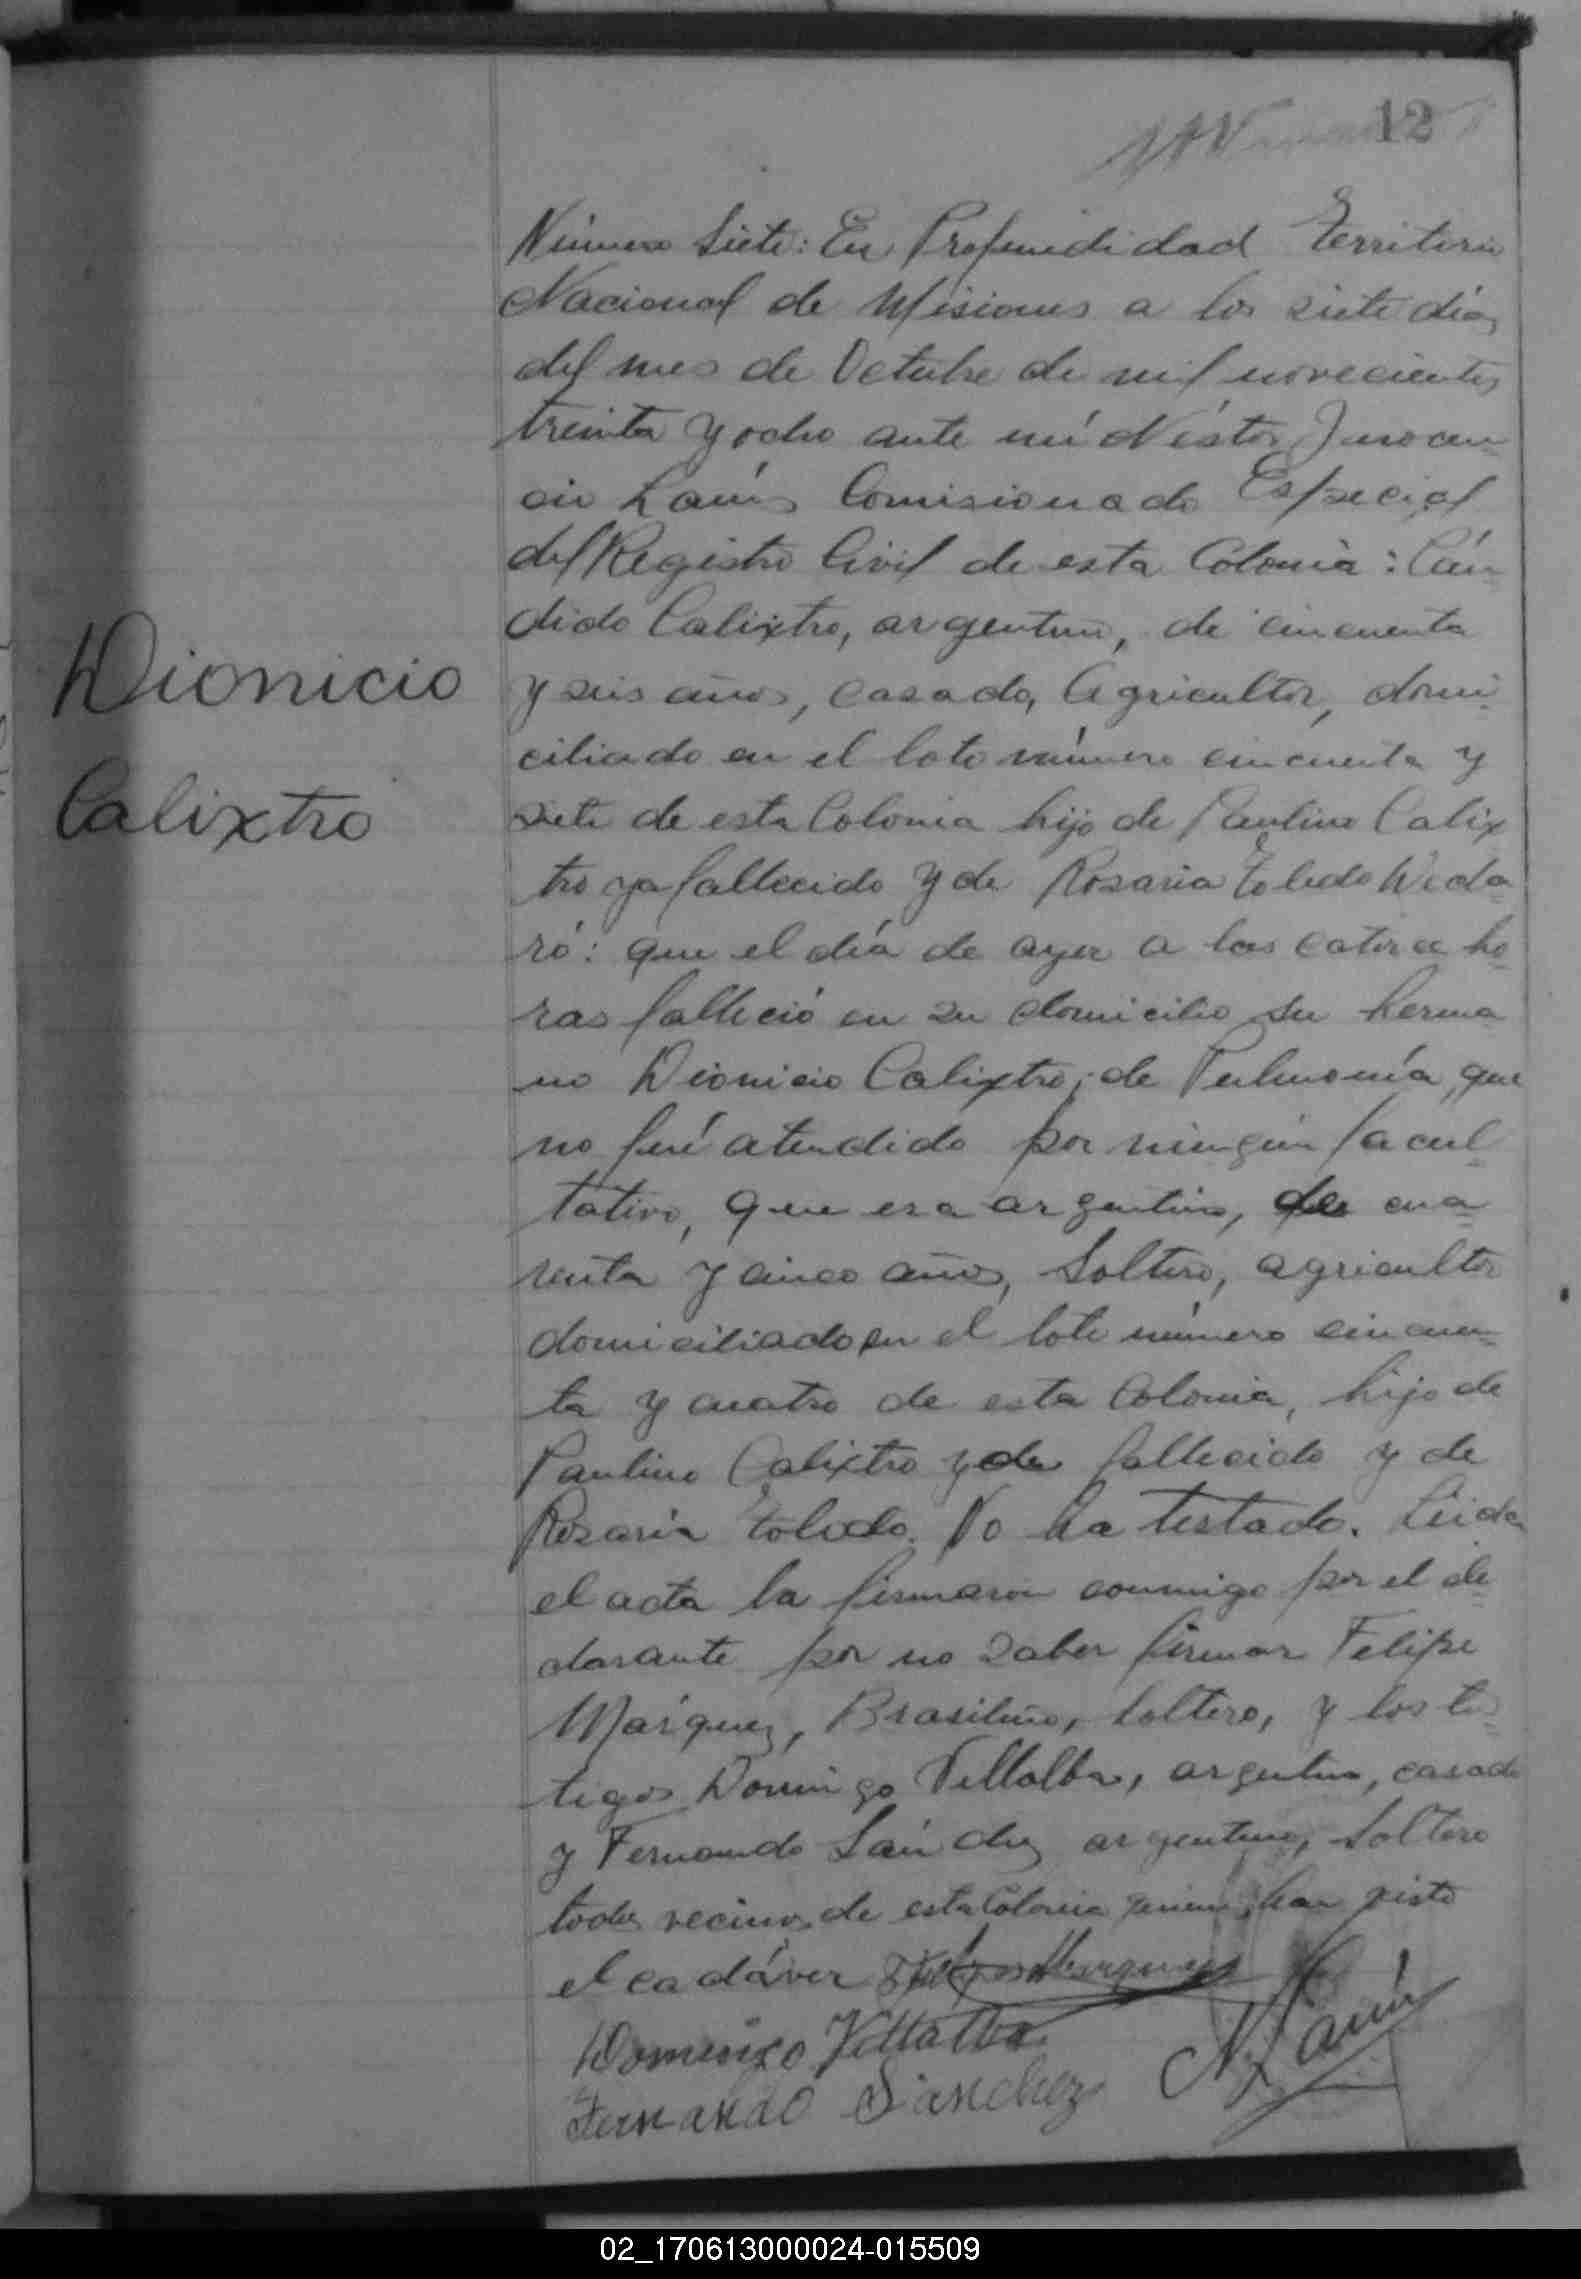 12
Número Siete: En Profundidad Territorio
Nacional de Misiones a los siete días
del mes de Octubre de mil novecientos
treinta y ocho ante mí Néstor Inocen-
cio Lanús Comisionado Especial
del Registro Civil de esta Colonia: Cán-
dido Calixtro, argentino, de cincuenta
y seis años, casado, Agricultor, domi-
ciliado en el lote número cincuenta y
siete de esta Colonia hijo de Paulino Calix
tro ya fallecido y de Rosaria Toledo Decla-
ró: que el día de ayer a las catorce ho-
ras falleció en su domicilio su herma-
no Dionicio Calixtro; de Pulmonía, que
no fué atendido por ningún facul-
tativo, que era argentino, de cua-
renta y cinco años, Soltero, agricultor
domiciliado en el lote número cincuen-
ta y cuatro de esta Colonia, hijo de
Paulino Calixtro y de fallecido y de
Rosaria Toledo. No ha testado. Leída
el acta la firmaron conmigo por el de-
clarante por no saber firmar Felipe
Márquez, Brasileño, Soltero, y los tes-
tigos Domingo Villalba, argentino, casado
y Fernando Sánchez argentino, Soltero
todos vecinos de esta Colonia quienes han visto
el cadáver Felipe Marquez
Domingo Villalba
Fernando Sanchez
N Lanús
Dionicio
Calixtro
02_170613000024-015509